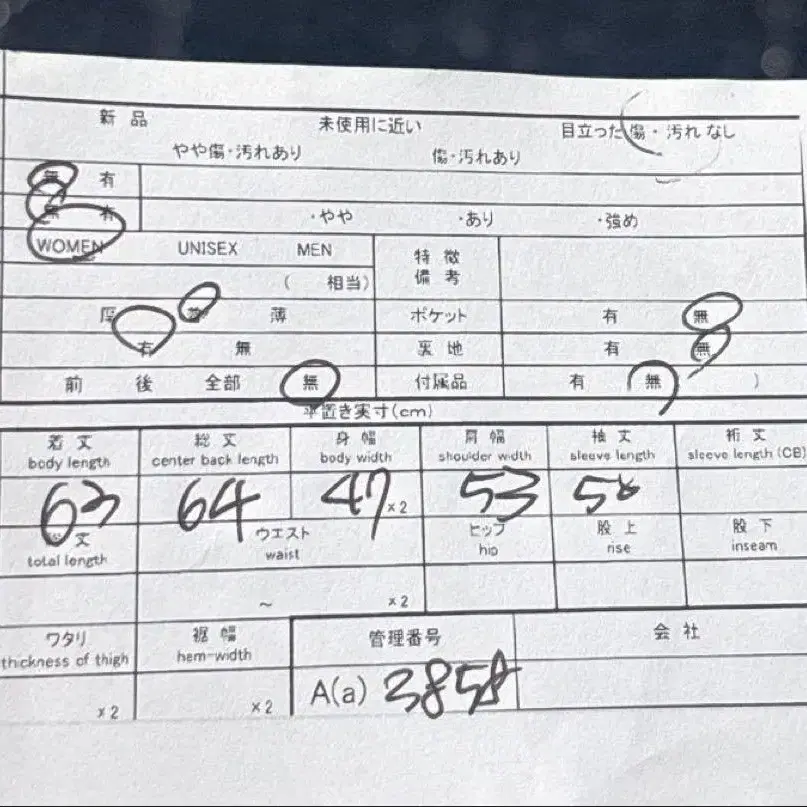 新品 未使用に近い 目立った傷・汚れなし
やや傷・汚れあり 傷・汚れあり
無 有
無 有 ・やや ・あり ・強め
WOMEN UNISEX MEN 特徴
備考
( 相当)
厚 普 薄 ポケット 有 無
有 無 裏地 有 無
前 後 全部 無 付属品 有 ( 無 )
平置き実寸(cm)
着丈 総丈 身幅 肩幅 袖丈 裄丈
body length center back length body width shoulder width sleeve length sleeve length (CB)
63 64 47 ×2 53 58
丈 ウエスト ヒップ 股上 股下
total length waist hip rise inseam
~ ×2
ワタリ 裾幅 管理番号 会社
thickness of thigh hem-width
×2 ×2 A(a) 3858